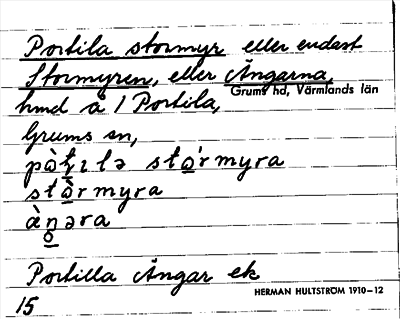 Portila stormyr eller endast
Stormyren, eller Ängarna,
Grums hd, Värmlands län
hmd å 1 Portila,
Grums sn,
stòrmyra
Portilla Ängar ek
HERMAN HULTSTRÖM 1910-12
15